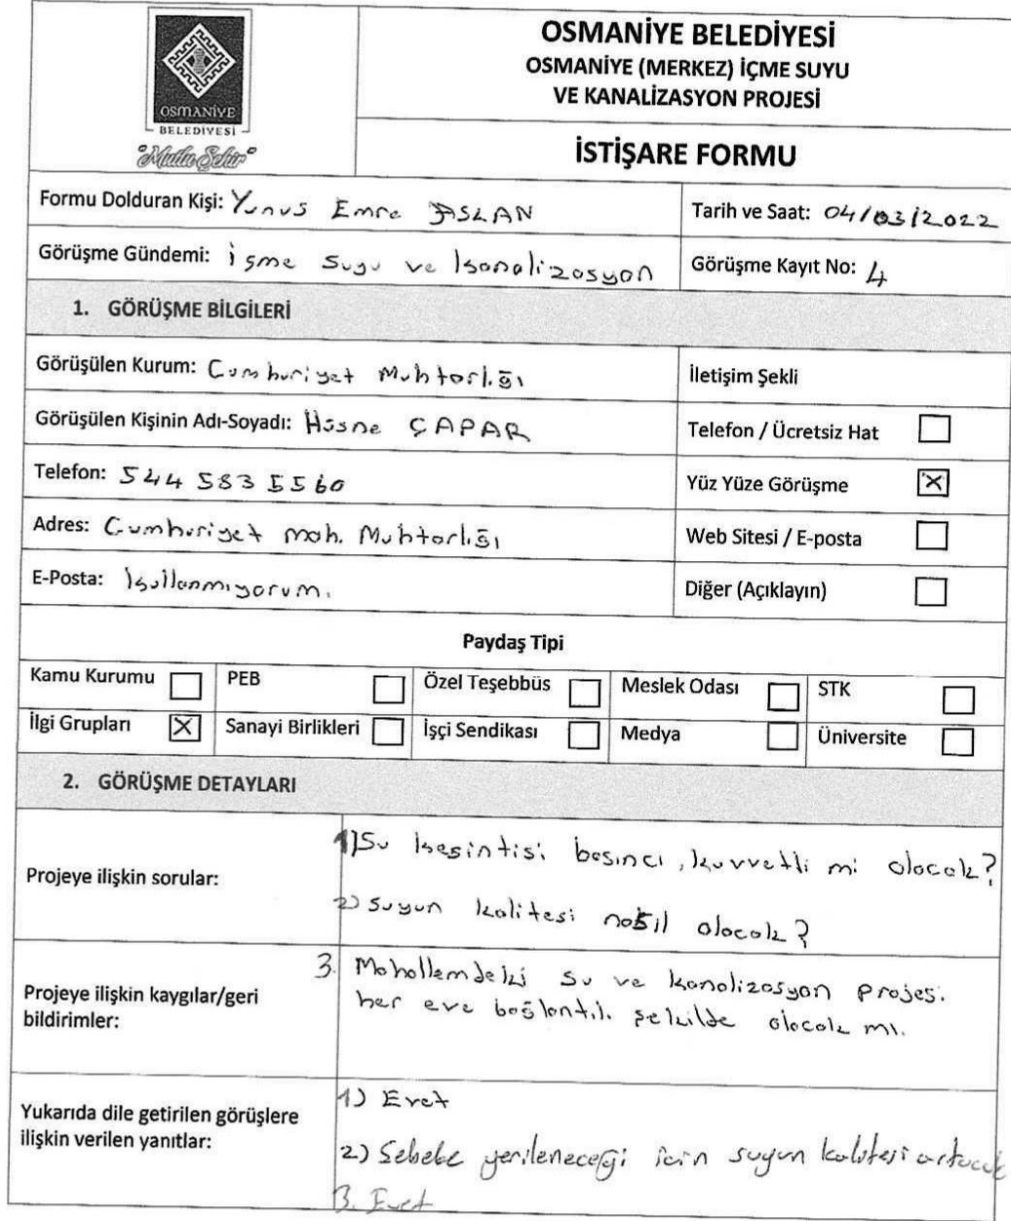 OSMANİYE
BELEDİYESİ
"Mutlu Şehir"
OSMANİYE BELEDİYESİ
OSMANİYE (MERKEZ) İÇME SUYU
VE KANALİZASYON PROJESİ
İSTİŞARE FORMU
Formu Dolduran Kişi: Yunus Emre ASLAN
Tarih ve Saat: 04/03/2022
Görüşme Gündemi: içme suyu ve kanalizasyon
Görüşme Kayıt No: 4
1. GÖRÜŞME BİLGİLERİ
Görüşülen Kurum: Cumhuriyet Muhtarlığı
İletişim Şekli
Görüşülen Kişinin Adı-Soyadı: Hüsne ÇAPAR
Telefon / Ücretsiz Hat
Telefon: 544 583 5560
Yüz Yüze Görüşme X
Adres: Cumhuriyet mah. Muhtarlığı
Web Sitesi / E-posta
E-Posta: kullanmıyorum.
Diğer (Açıklayın)
Paydaş Tipi
Kamu Kurumu PEB Özel Teşebbüs Meslek Odası STK
İlgi Grupları X Sanayi Birlikleri İşçi Sendikası Medya Üniversite
2. GÖRÜŞME DETAYLARI
Projeye ilişkin sorular:
1) Su kesintisi basıncı, kuvvetli mi olacak?
2) suyun kalitesi nasıl olacak?
Projeye ilişkin kaygılar/geri
bildirimler:
3. Mahallemdeki su ve kanalizasyon projesi
her eve bağlantılı şekilde olacak mı.
Yukarıda dile getirilen görüşlere
ilişkin verilen yanıtlar:
1) Evet
2) Şebeke yenileneceği için suyun kalitesi artacak
3. Evet